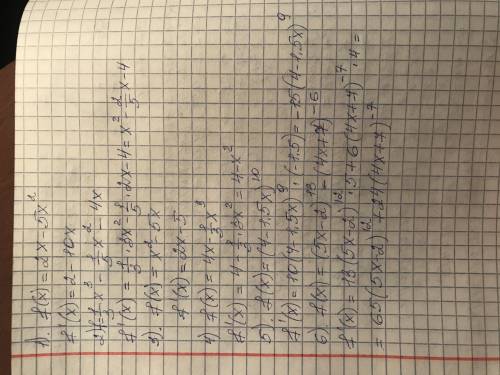 1). f(x) = 2x - 5x²
f'(x) = 2 - 10x
2) f = 1/3 x³ - 1/5 x² - 4x
f'(x) = 1/3 · 3x² - 1/5 · 2x - 4 = x² - 2/5 x - 4
3). f(x) = x² - 5x
f'(x) = 2x - 5
4) f(x) = 4x - 1/3 x³
f'(x) = 4 - 1/3 · 3x² = 4 - x²
5). f(x) = (4 - 1,5x)¹⁰
f'(x) = 10(4 - 1,5x)⁹ · (-1,5) = -15(4 - 1,5x)⁹
6). f(x) = (5x - 2)¹³ - (4x + 7)⁻⁶
f'(x) = 13(5x - 2)¹² · 5 + 6(4x + 7)⁻⁷ · 4 =
= 65(5x - 2)¹² + 24(4x + 7)⁻⁷